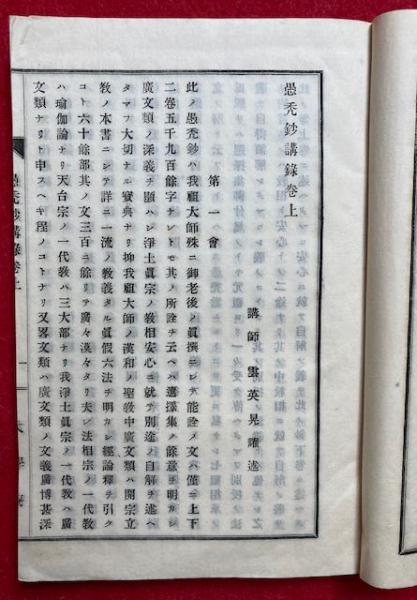 愚禿鈔講錄卷上
講師雲英晃耀述
第一會
此ノ愚禿鈔ハ我祖大師殊ニ御老後ノ眞撰ニシテ能詮ノ文ハ僅ニ上下
二卷五千九百餘字ナレトモ其ノ所詮ヲ云ヘハ選擇集ノ餘意ヲ明カシ
廣文類ノ深義ヲ顯ハシ淨土眞宗ノ敎相安心ニ就テ別途ノ自解ヲ述ヘ
タマフ大切ナル寶典ナリ抑我祖大師ノ漢和ノ聖敎中廣文類ハ開宗立
敎ノ本書ニシテ詳ニ一流ノ敎義タル眞假六法ヲ明カシ經論釋ヲ引ク
コト六十餘部其ノ文三百ニ餘リテ廣々漠々タリ夫レ法相宗ノ一代敎
ハ瑜伽論ナリ天台宗ノ一代敎ハ三大部ナリ我淨土眞宗ノ一代敎ハ廣
文類ナリト申スヘキ程ノコトナリ又畧文類ハ廣文類ノ文義廣博甚深
愚禿鈔講錄卷上
一